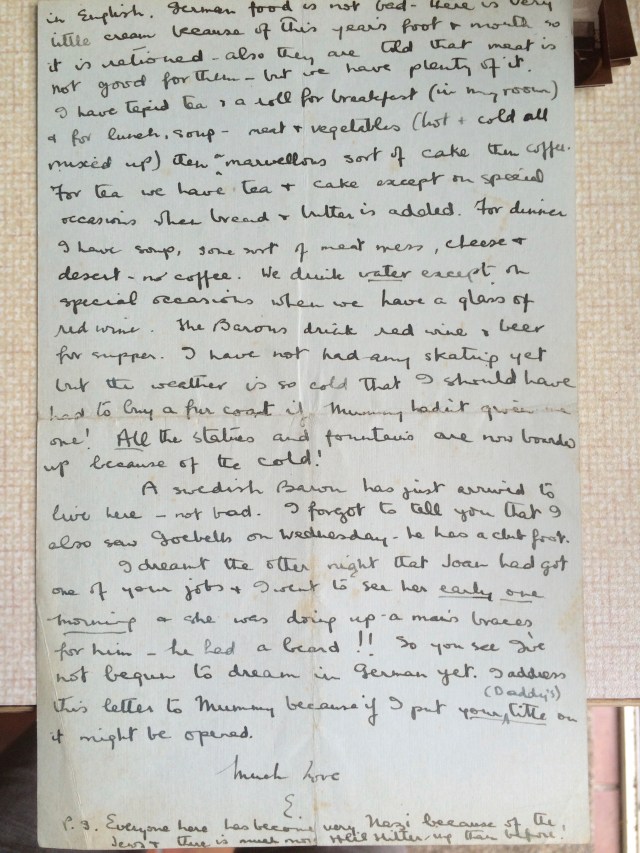 in English. German food is not bad - there is very
little cream because of this year's foot & mouth so
it is rationed - also they are told that meat is
not good for them - but we have plenty of it.
I have tepid tea & a roll for breakfast (in my room)
& for lunch, soup - meat & vegetables (hot + cold all
mixed up) then marvellous sort of cake then coffee.
For tea we have tea & cake except on special
occasions when bread & butter is added. For dinner
I have soup, some sort of meat mess, cheese &
desert - no coffee. We drink water except on
special occasions when we have a glass of
red wine. The Barons drink red wine & beer
for supper. I have not had any skating yet
but the weather is so cold that I should have
had to buy a fur coat if Mummy hadn't given me
one! All the statues and fountains are now boarded
up because of the cold!
A swedish Baron has just arrived to
live here - not bad. I forgot to tell you that I
also saw Goebells on Wednesday - he has a club foot.
I dreamt the other night that Joan had got
one of your jobs & I went to see her early one
morning & she was doing up - a man's braces
for him - he had a beard !! So you see I've
not begun to dream in German yet. I address
this letter to Mummy because if I put your (Daddy's) title on
it might be opened.
Much Love
E.
P.S. Everyone here has become very Nazi because of the
Jews & there is much more Heil Hitler-ing than before!